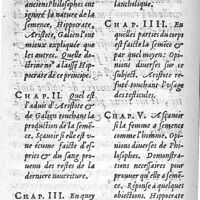 anciens Philosophes ont
ignoré la nature de la
semence, Hippocrate,
Aristote, Galien l'ont
mieux expliquée que
les autres. Quelle do-
ctrine no9 a laissé Hip-
pocrate de ce principe.
CHAP. II. Quel est
l'aduis d'Aristote &
de Galien touchant la
production de la semē-
ce. Sçauoir si elle est v-
ne écume faicte d'es-
prits & du sang prouu-
des restes de la
derniere nourriture.
CHAP. III. En quoy
lancholique.
CHAP. IIII. En
quelles parties du corps
est faicte la semēce &
par quel moyen: Opi-
nions diuerses sur ce
subject. Aristote re-
futé touchant l'vsage
des testicules.
CHAP. V. A sçauoir
si la femme a semence
comme l'homme. Opi-
nions diuerses de Phi-
losophes. Demonstra-
tions necessaires pour
prouuer que elle a se-
mēce. Réponse à quelques
obiections. Hippocrate